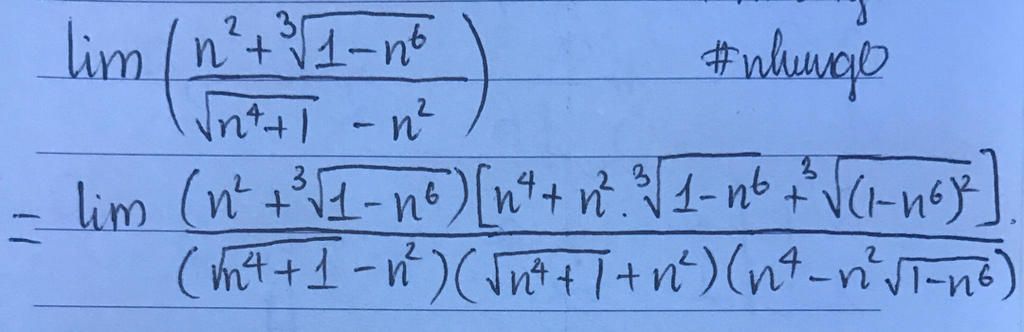 lim ( (n² + ∛(1-n⁶)) / (√(n⁴+1) - n²) ) #nhungo
= lim ( (n² + ∛(1-n⁶)) [n⁴ + n² . ∛(1-n⁶) + ∛((1-n⁶)²)] . ) / ( (√(n⁴+1) - n²) (√(n⁴+1) + n²) (n⁴ - n² √(1-n⁶)) )